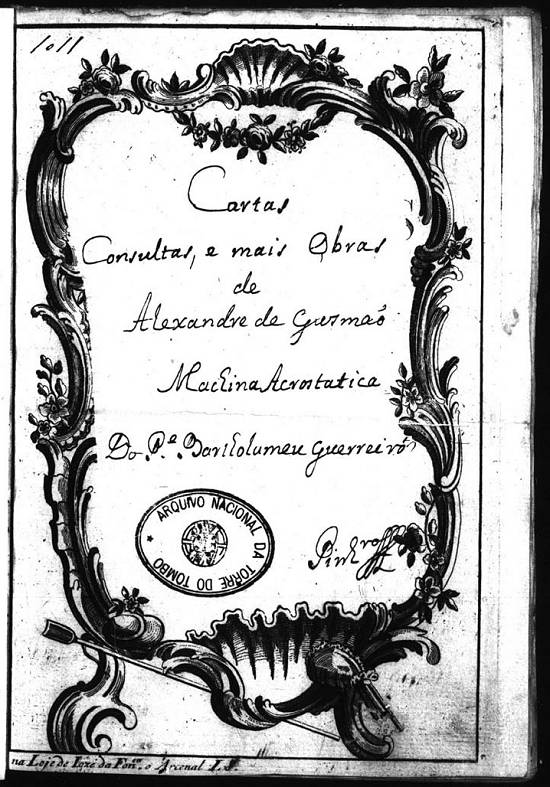 1011
Cartas
Consultas, e mais Obras
de
Alexandre de Gusmaõ
Machina Aerostatica
Do P.e Bartholumeu Guerreiro
ARQUIVO NACIONAL DA TORRE DO TOMBO
na Loje de da o Arcenal